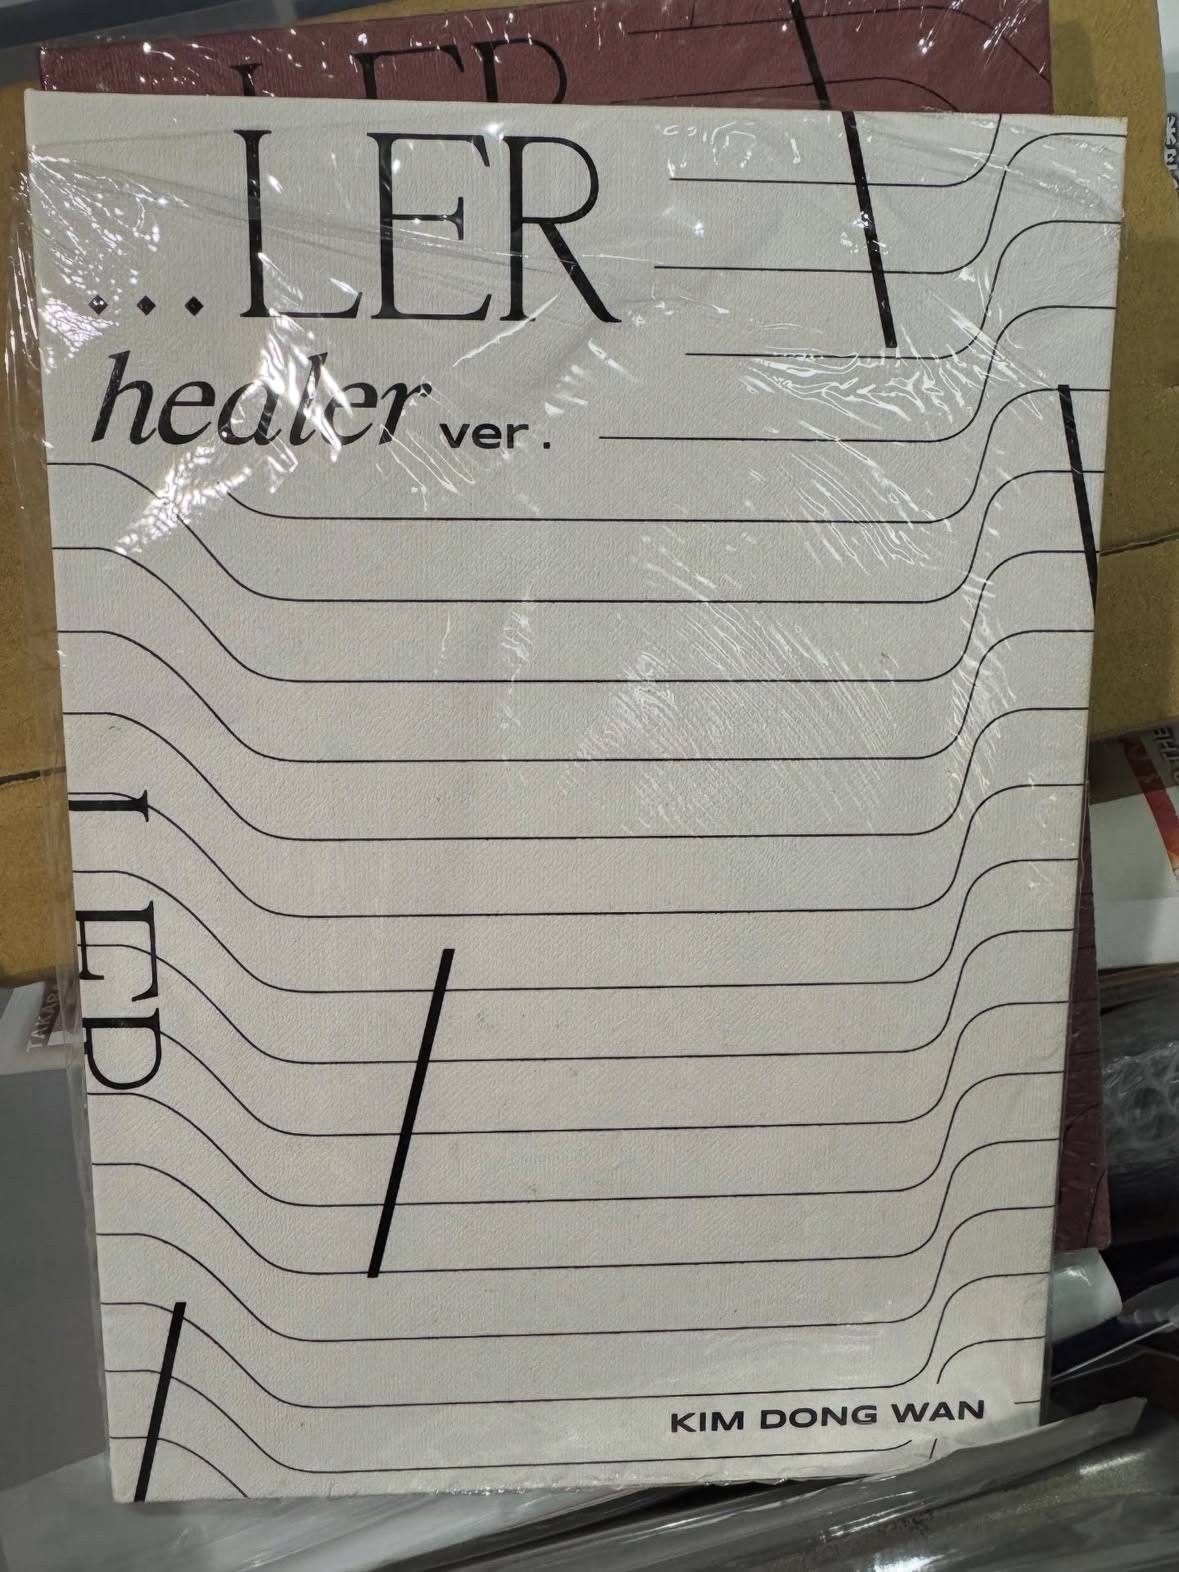 ...LER
healer ver.
KIM DONG WAN